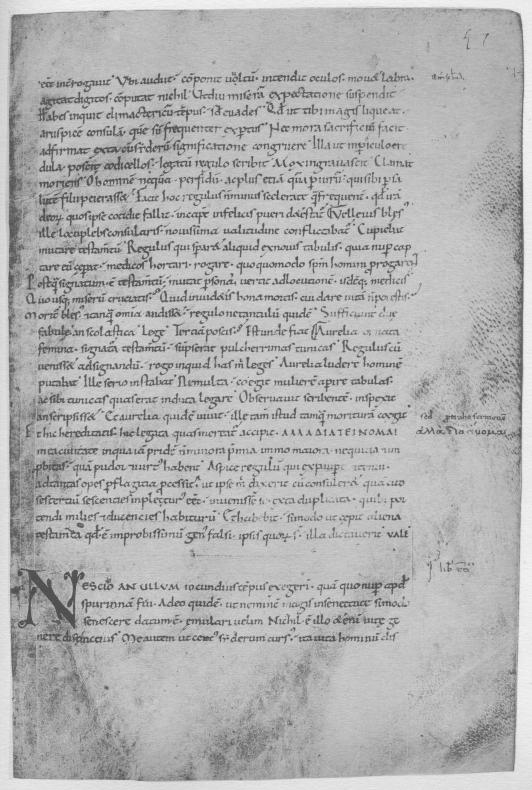 47
ēēt interrogavit Ubi audiit · cōponit vultum · intendit oculos · movet labra ·
agitat digitos · cōputat nichil Ut diu miserā expectatione suspendit
Habes inquit climactericū tēpus · sed evades Qd ut tibi magis liqueat ·
aruspicē consulā quē sū frequenter exptus Nec mora sacrificiū facit
adfirmat exta cū siderū significatione congruere Illa ut in piculo cre
dula poscit codicellos · legatū regulo scribit Mox ingravascit Clamat
moriens O hominē nequā · pfidū · ac plus etiā quā piurū · qui sibi p sa
lutē filii peierasset Facit hoc regulus n minus scelerate quā frequent · qd irā
deorū quos ipse cotidie fallit · in caput infelicis pueri detestat Velleius bles
ille locuples consularis · novissima valitudine conflictabat Cupiebat
mutare testamtū Regulus qui speraret aliquid ex novis tabulis · quia nup cap
tare eū cepat · medicos hortari · rogare · quoquo modo spm homini progarēt
Postquā signatum ē testamtū · mutat psonā · vertit adlocutionē · isdēq medicis
Quo usq miserū cruciatis Quid invidetis bona morte · cui dare vitā n potestis
Moritur bles · et tanquā omia audisset · regulo ne tantulū quidē Sufficiunt due
fabule an scolastica lege Terciā poscis Est unde fiat Aurelia ornata
femina · signatura testamtū · supserat pulcherrimas tunicas Regulus cū
venisset ad signandū · rogo inquid has m leges Aurelia ludere hominē
putabat Ille serio instabat Ne multa · coegit mulierē apire tabulas ·
ac sibi tunicas quas erat induta legare Observavit scribentē · inspexit
an scripsisset Et aurelia quidē vivit · ille tam istud tamq moriturā coegit
Et hic hereditatis · hic legata quasi mereat accipit · ΑΛΛΑ ΔΙΑΤΕΙΝΟΜΑΙ
in ea civitate in qua iā pridē n minora pmia immo maiora · nequitia et in
pbitas · quā pudor et virt habent Aspice regulū qui ex paupe et tenui ·
ad tantas opes p flagitia pcessit · ut ipse m dixerit cū consuleret quā cito
sestertiū sescenties impleturus eēt · invenisse se exta duplicata · quibus por
tendi milies et ducenties habiturū Et habebit · si modo ut cepit aliena
testamta qd ē improbissimū genus falsi · ipsis quorum s · illa dictaverit VALE
NESCIO AN ULLUM iocundius tēpus exegeri · quā quo nup apd
spurinnā fui · Adeo quidē · ut neminē magis in senectute si modo
senescere datum ē · emulari velim Nichil ē illo enī vitę ge
nere distinctius Me autem ut certus siderum cursus · ita vita hominū dis